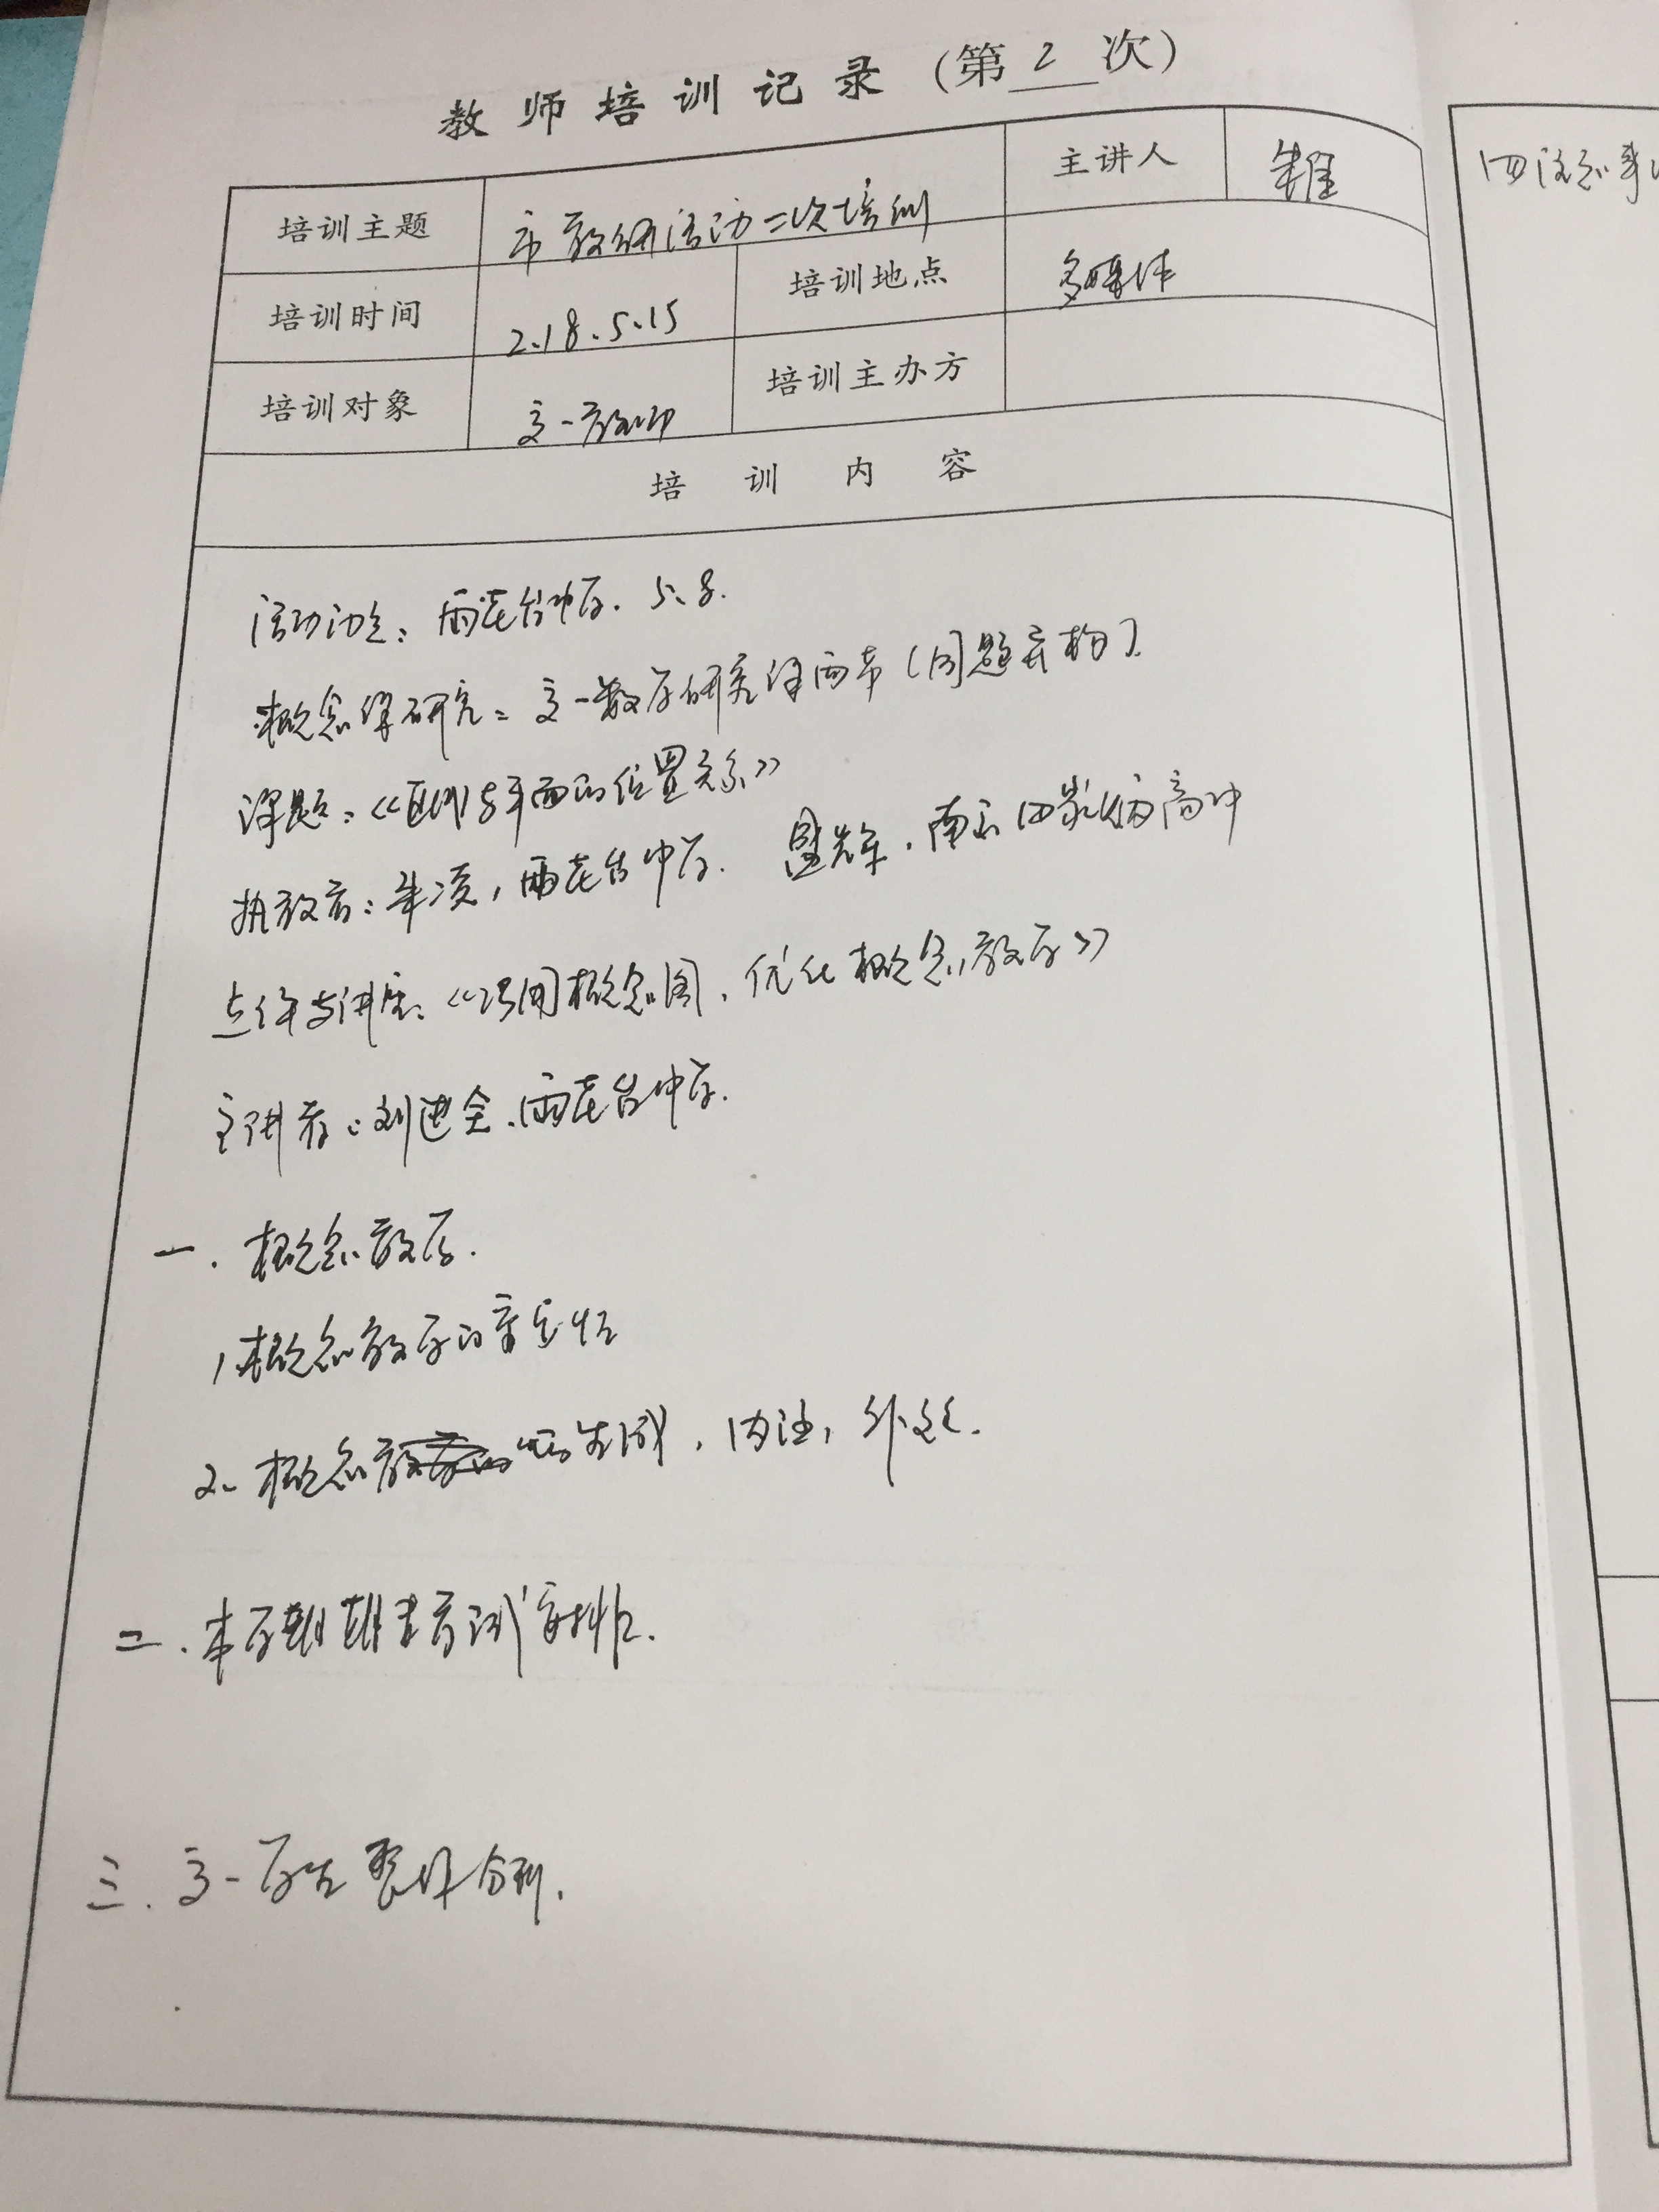 教师培训记录（第2次）
培训主题 市教研活动二次培训 主讲人
培训时间 2018.5.15 培训地点 多媒体
培训对象 高一教师 培训主办方
培训内容
活动地点：雨花台中学. 5.8.
概念课研究：高一数学研究课两节（同题异构）
课题：《直线与平面的位置关系》
执教者：朱凌，雨花台中学. 南京 高中
点评与讲座：《巧用概念图，优化概念教学》
主讲者：刘进全.雨花台中学.
一.概念教学.
1.概念教学的重要性
2.概念的生成，内涵，外延.
二.本学期期末考试安排.
三.高一学生整体分析.
四注意事